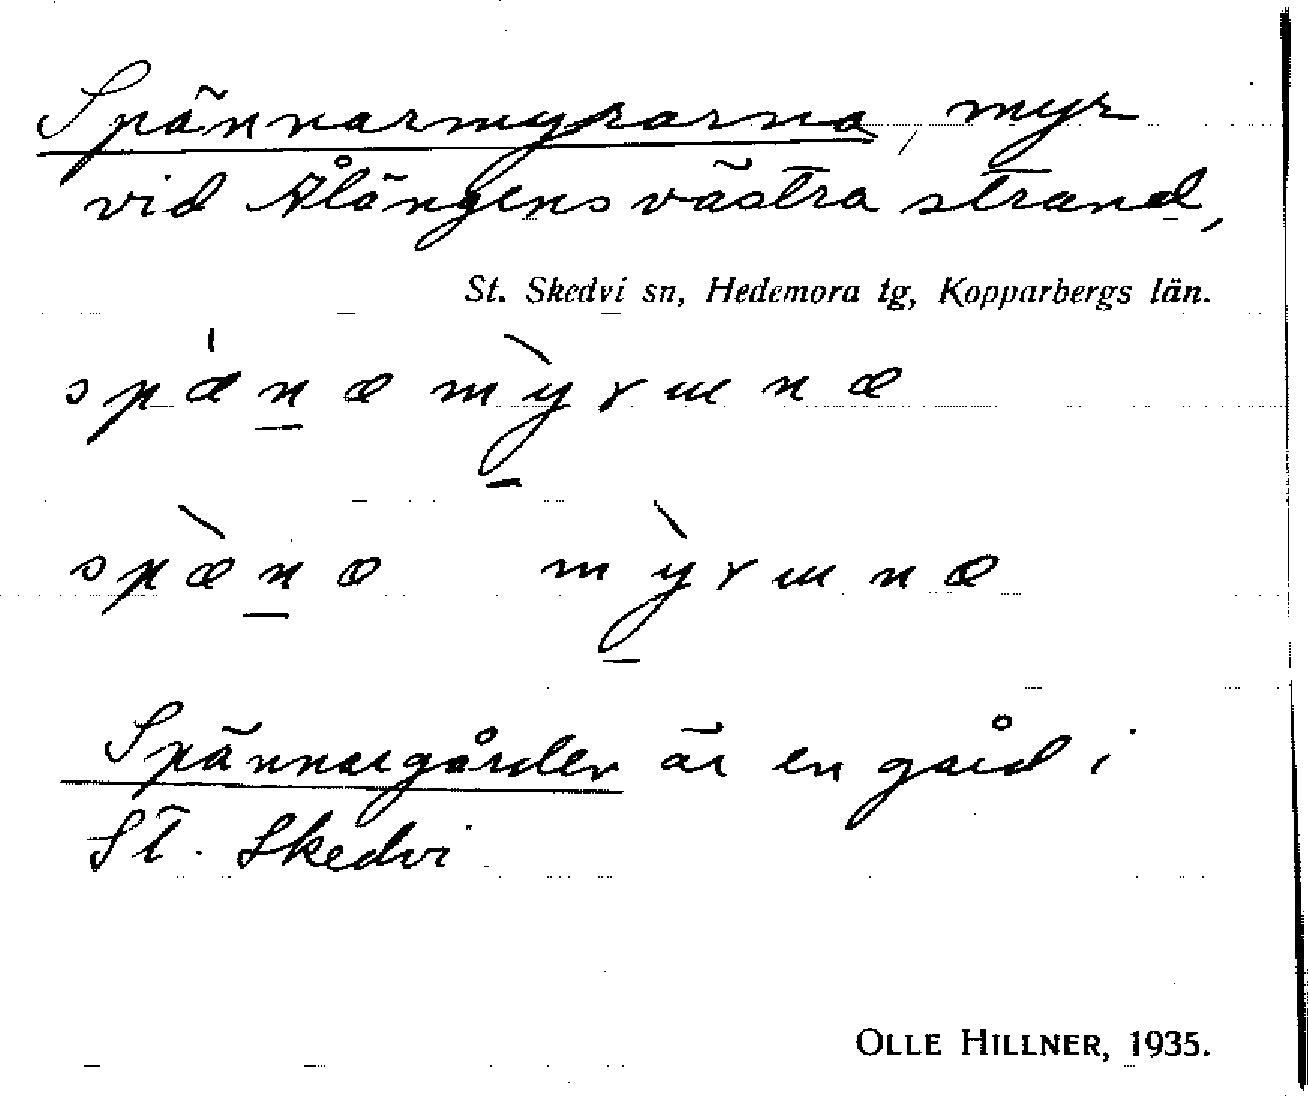 Spännarmyrarna, myr
vid Ålängens västra strand,
St. Skedvi sn, Hedemora tg, Kopparbergs län.
spænæ myrɯnæ
spænæ myrɯnæ
Spännargården är en gård i
St. Skedvi
OLLE HILLNER, 1935.